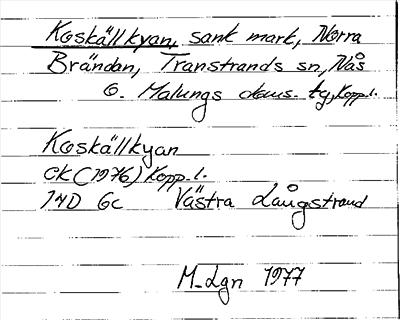 Koskällkyan, sank mark, Norra
Brändan, Transtrands sn, Nås
o. Malungs doms. tg, Kopp. l.
Koskällkyan
EK (1976) Kopp. l.
14D 6c Västra Långstrand
M-Lgn 1977